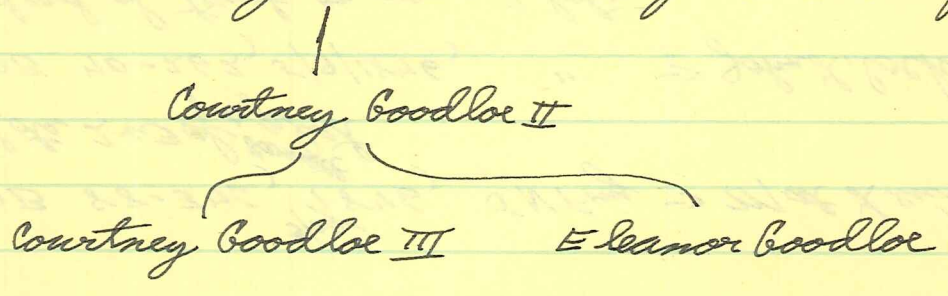 Courtney Goodloe II
Courtney Goodloe III Eleanor Goodloe